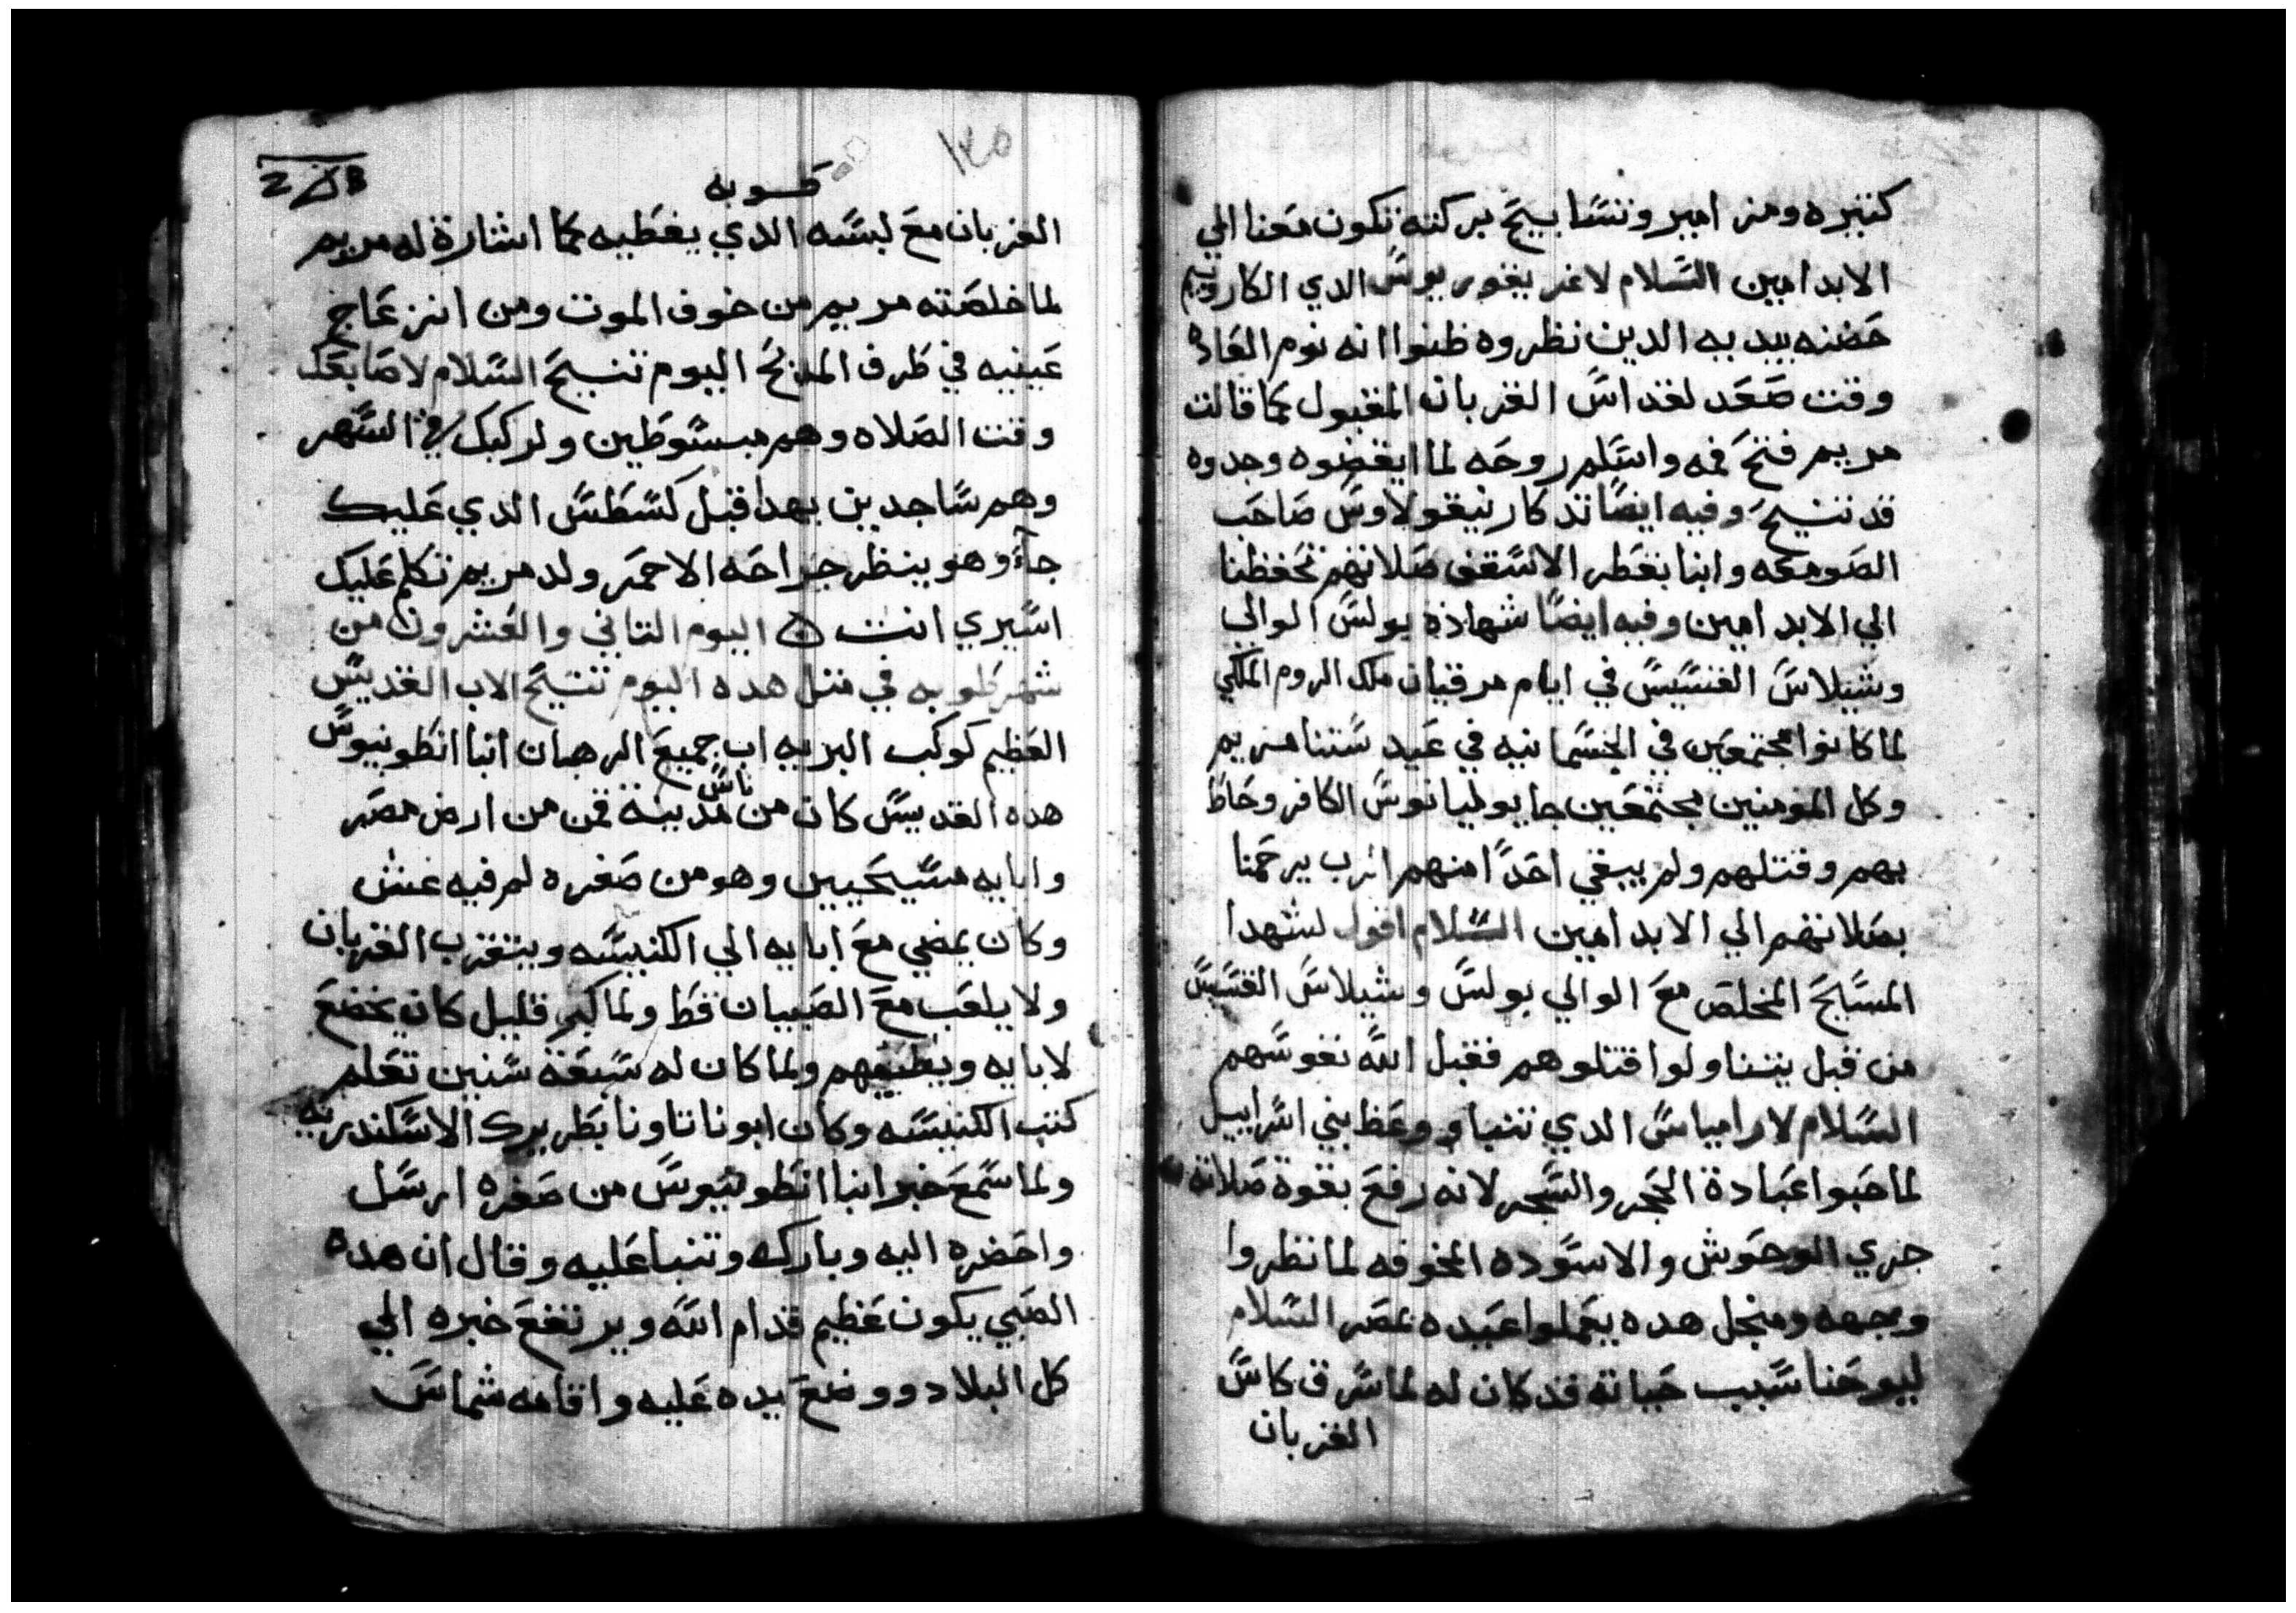 كتيره ومزامير وتسابيح بركته تكون معنا الي
الابد امين السلام لاغريغوريوس الدي الكاروبيم
حضنه بيديه الدين نظروه ظنوا انه نوم العاده
وقت صعد لقداس القربان المقبول كما قالت
مريم فتح فمه واسلم روحه لما ايقضوه وجدوه
قد تنيح وفيه ايضا تدكار نيقولاوس صاحب
الصومعه وانبا بغطر الاسقف صلاتهم تحفظنا
الي الابد امين وفيه ايضا شهادة بولس الوالي
وشيلاس القسيس في ايام مرقيان ملك الروم الملكي
لما كانوا مجتمعين في الجسمانيه في عيد ستنا مريم
وكل المومنين مجتمعين جا يوليانوس الكافر وحاط
بهم وقتلهم ولم يبقي احدا منهم الرب يرحمنا
بصلاتهم الي الابد امين السلام اقول لشهدا
المسايح المخلص مع الوالي بولس وشيلاس القسيس
من قبل بيننا ولوا قتلوهم فقبل الله نفوسهم
السلام لارامياس الدي تنبا ووعظ بني اسراييل
لما حبوا عبادة الحجر والشجر لانه رفع بقوة صلاته
جري الوحوش والاسوده المخوفه لما نظروا
وجهه ومنجل هده يعملوا عيده بمصر السلام
ليوحنا سبب حياته قد كان له لما سرق كاس
القربان
2
١٣٥
طوبه
القربان مع لبسه الدي يغطيه كما اشارة له مريم
لما خلصته مريم من خوف الموت ومن انزعاج
عينيه في طرف المدبح اليوم تنيح السلام لاصابعك
وقت الصلاه وهم مبسوطين ولركبك في السهر
وهم ساجدين بهدا قبل كسطس الدي عليك
جاء وهو ينظر جراحه الاحمر ولد مريم تكلم عليك
اسيري انت اليوم التاني والعشرون من
شهر طوبه في متل هده اليوم تنيح الاب القديس
العظيم كوكب البريه اب جميع الرهبان انبا انطونيوس
هده القديس كان من ناس مدينة قمن من ارض مصر
وابايه مسيحيين وهو من صغره لم فيه غش
وكان يمضي مع ابايه الي الكنيسه ويتقرب القربان
ولا يلعب مع الصبيان قط ولما كبر قليل كان يخضع
لابايه ويطيعهم ولما كان له سبعة سنين تعلم
كتب الكنيسه وكان ابونا تاونا بطريرك الاسكندريه
ولما سمع خبر انبا انطونيوس من صغره ارسل
واحضره اليه وباركه وتنبا عليه وقال ان هده
الصبي يكون عظيم قدام الله ويرتفع خبره الي
كل البلاد ووضع يده عليه واقامه شماس